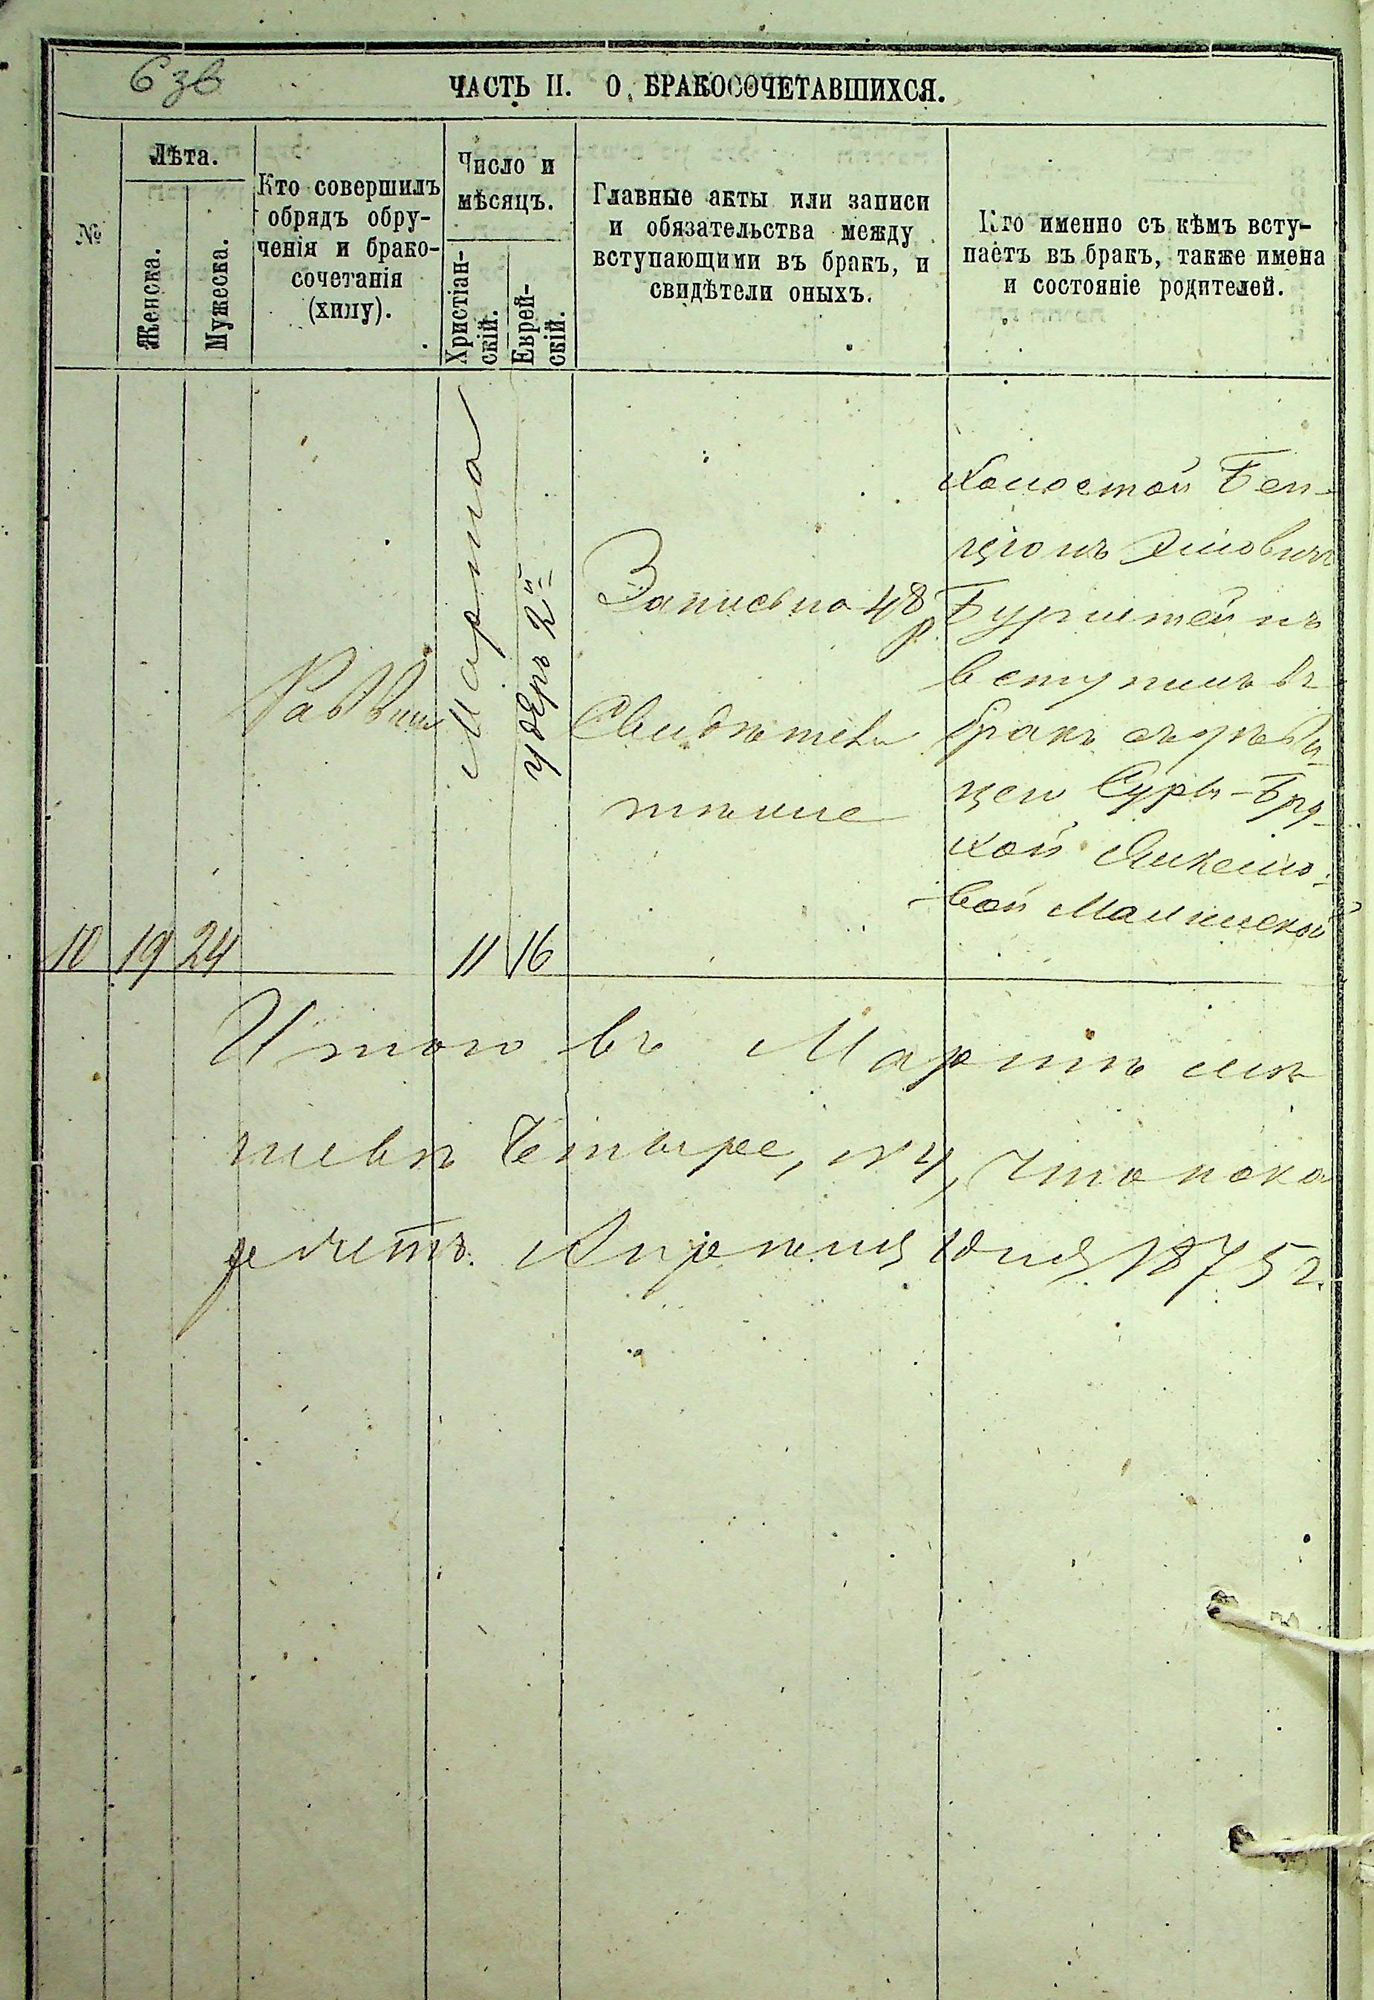 6зв
ЧАСТЬ II. О БРАКОСОЧЕТАВШИХСЯ.
№
Лѣта.
Женска.
Мужеска.
Кто совершилъ
обрядъ обру-
ченія и брако-
сочетанія
(хипу).
Число и
мѣсяцъ.
Христіан-
скій.
Еврей-
скій.
Главные акты или записи
и обязательства между
вступающими въ бракъ, и
свидѣтели оныхъ.
Кто именно съ кѣмъ всту-
паетъ въ бракъ, также имена
и состояніе родителей.
10
19
24
Раввин
Марта
11
удеръ 2й
16
Запись на 48 р
Свидѣтели
тѣже
Холостой Бен-
ціонъ
Бурштейнъ
вступилъ въ
бракъ съ дѣви-
цей Суръ-Бру-
хой Янкелю-
вой Малинской
Итого въ Мартѣ
четыре, №4, что
Апреля 1 дня 1875 г.